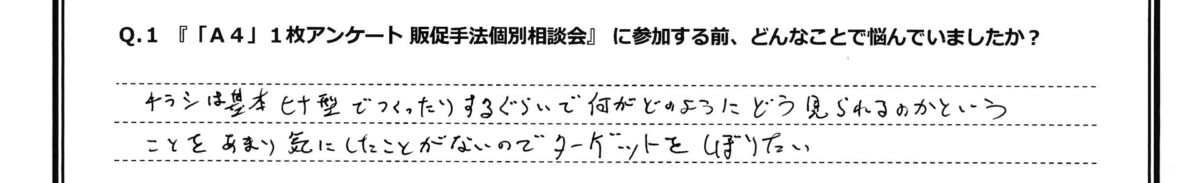 Q.1 『「A4」1枚アンケート 販促手法個別相談会』 に参加する前、どんなことで悩んでいましたか？
チラシは基本ヒナ型でつくったりするぐらいで何がどのようにどう見られるのかという
ことをあまり気にしたことがないのでターゲットをしぼりたい